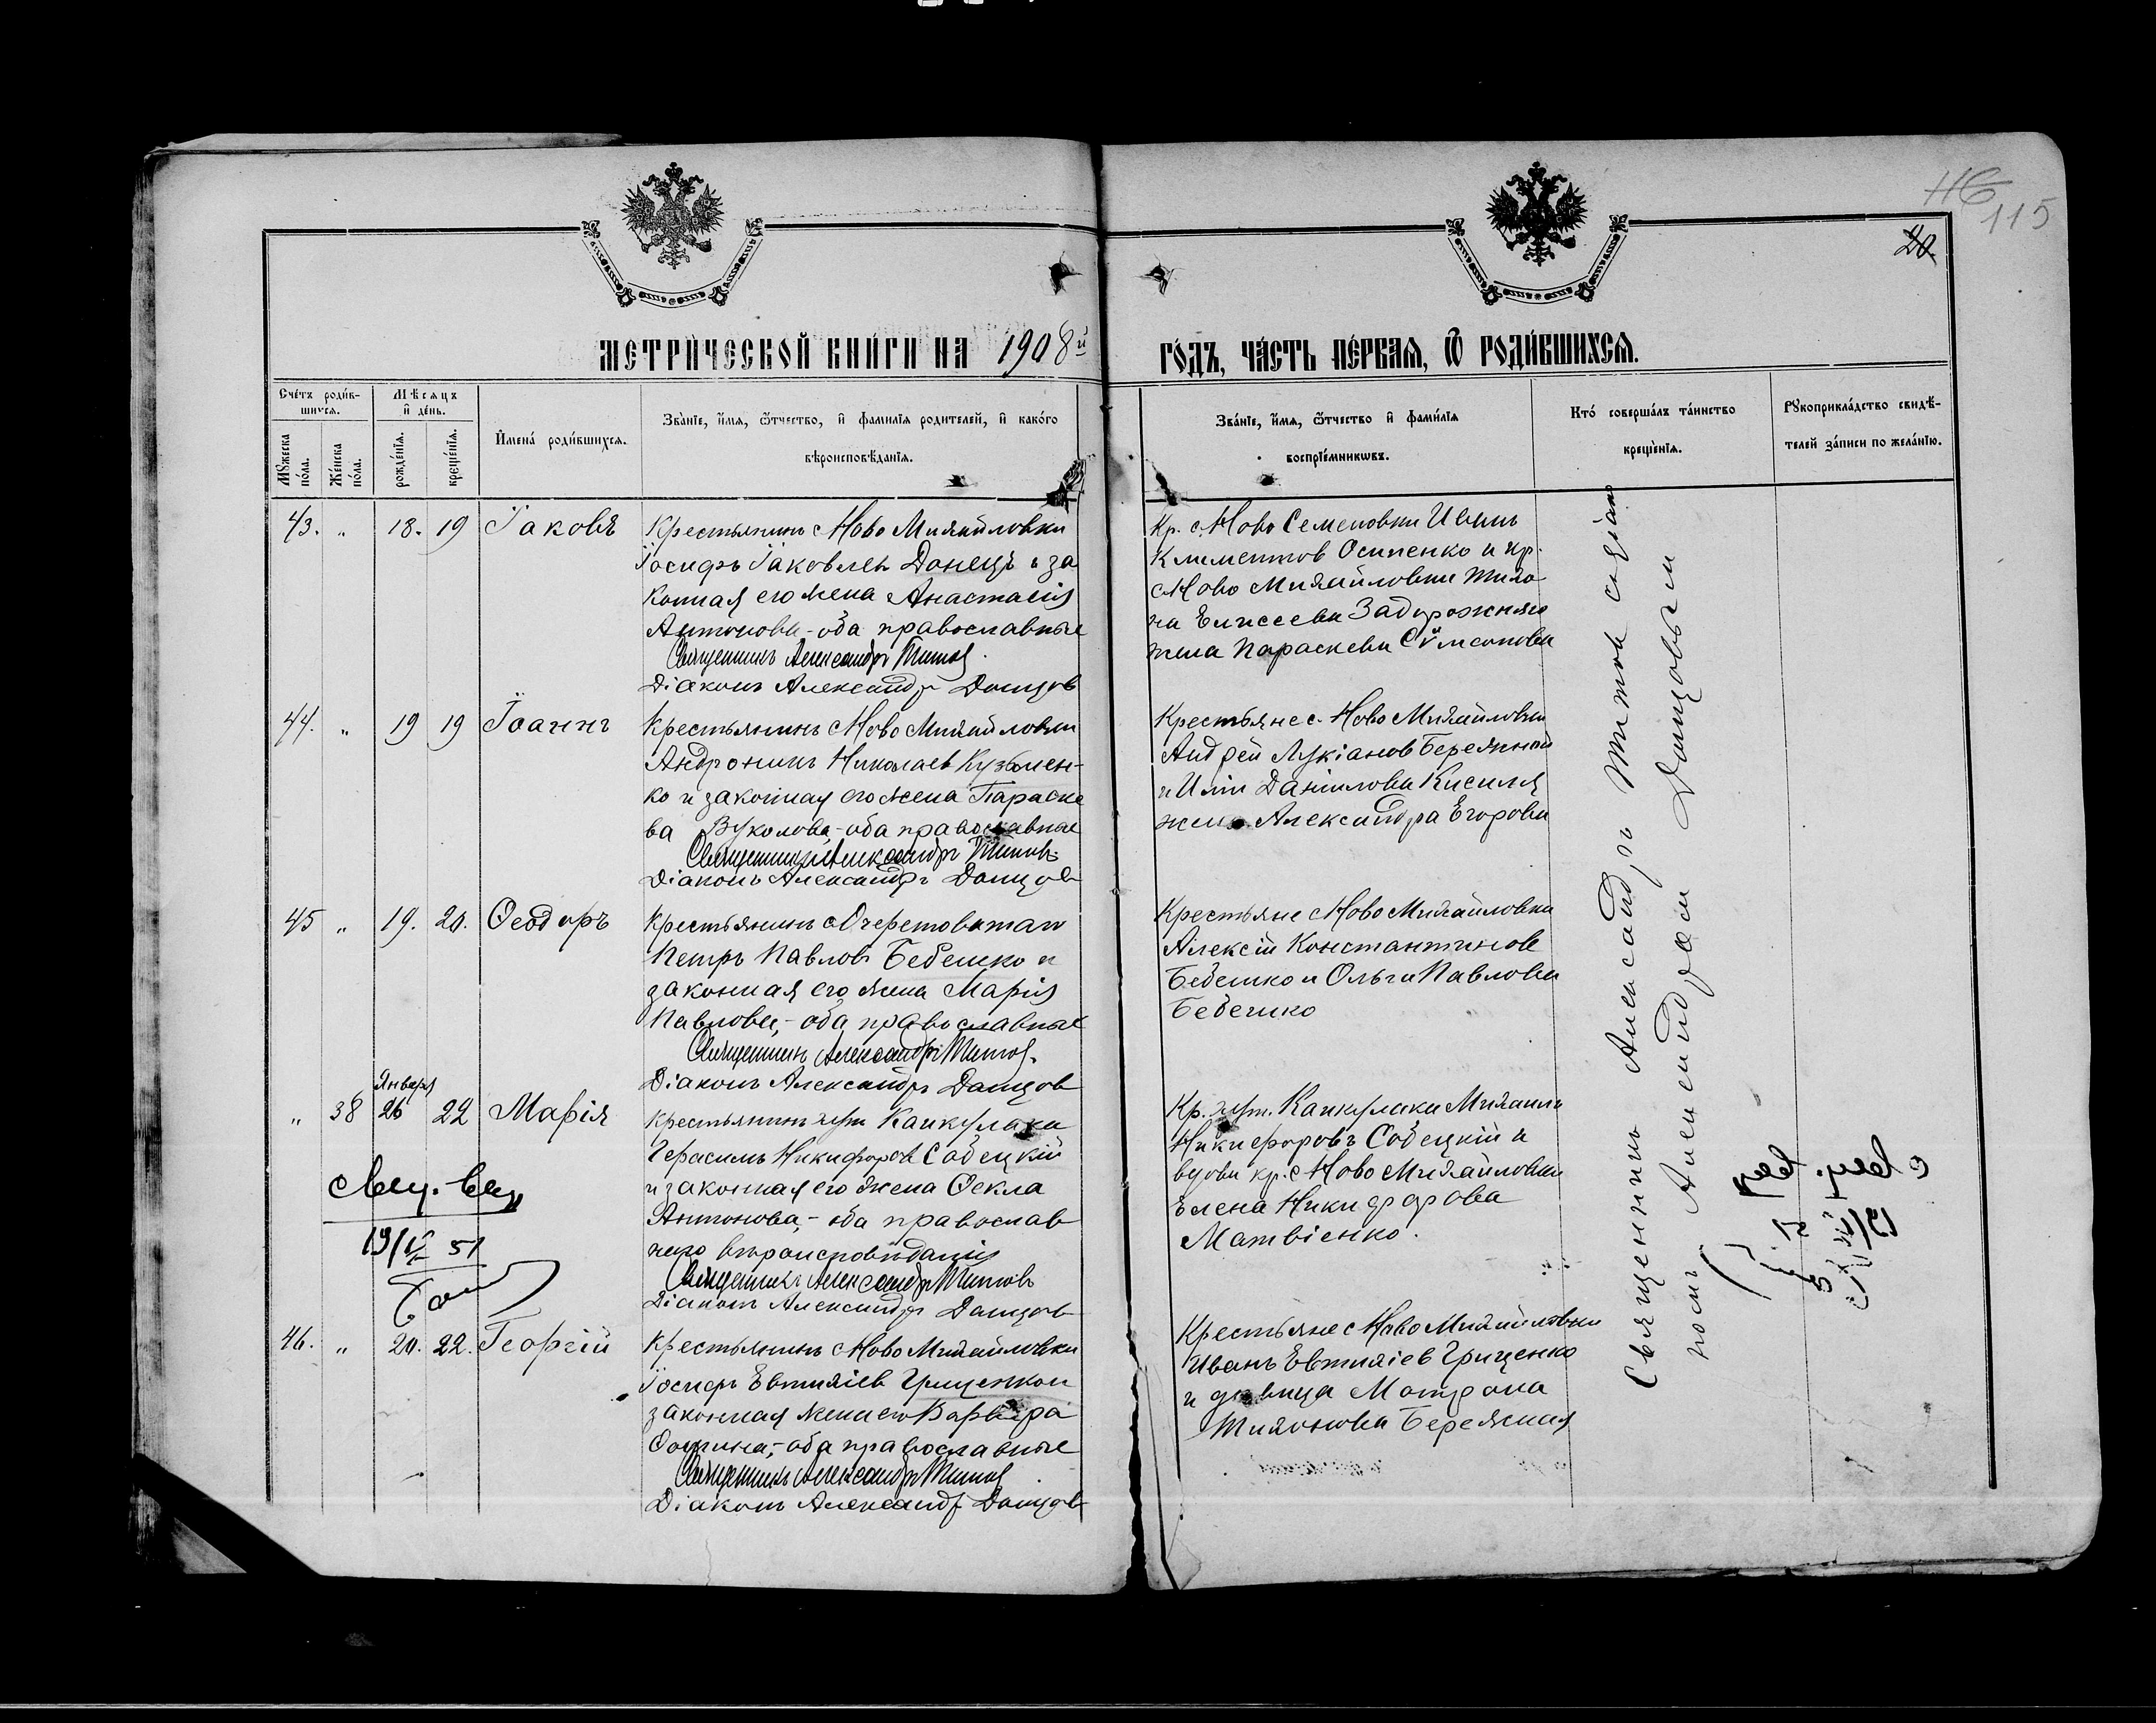 115
20.
МЕТРИ́ЧЕСКОЙ КНИ́ГИ НА 1908й ГО́ДЪ, ЧА́СТЬ ПЕ́РВАЯ, Ѿ РОДИ́ВШИХСЯ.
Сче́тъ роди́в-
шихся.
Мꙋжеска по́ла.
Же́нска по́ла.
Мѣсяцъ и҆ де́нь.
рожде́нїя.
креще́нїя.
И҆мена́ роди́вшихся.
Зва́нїе, и҆́мя, ѻ҆́тчество, и҆ фами́лїя родителей, и҆ како́го
вѣроисповѣ́данїя.
Зва́нїе, и҆́мя, ѻ҆́тчество и҆ фами́лїя
воспрїе́мникѡвъ.
Кто́ соверша́лъ та́инство
креще́нїя.
Рꙋкоприкла́дство свидѣ́-
телей за́писи по жела́нїю.
43. " 18. 19 Іаковъ
Крестьянинъ с Ново Михайловки
Іосифъ Іаковлевъ Донецъ и за
конная его жена Анастасія
Антонова - оба православные
Священникъ Александръ Титов.
Діаконъ Александръ Донцов
Кр. с. Ново Семеновки Иванъ
Климентов Осипенко и кр.
с Ново Михайловки Тихо
на Елисеева Задорожняго
жена Параскева Сѵмеонова
44. " 19 19 Іоаннъ
Крестьянинъ с Ново Михайловки
Андроникъ Николаев Кузьмен-
ко и законная его жена Параске
ва Вуколова, - оба православные
Священникъ Александръ Титовъ.
Діаконъ Александръ Донцов
Крестьяне с. Ново Михайловки
Андрей Лукіанов Бережной
и Иліи Даніилова Кисиля
жена Александра Егорова
45 " 19. 20. Ѳеодоръ
Крестьянинъ с Очеретоватаго
Петръ Павлов Бебешко и
законная его жена Марія
Павлова, - оба православные
Священникъ Александръ Титов.
Діаконъ Александръ Донцов
Крестьяне с Ново Михайловки
Алексій Константинов
Бебешко и Ольга Павлова
Бебешко
" 38 Января 26 22 Марія
Крестьянинъ хут. Канкулака
Герасимъ Никифоров Собецкій
и законная его жена Ѳекла
Антонова, - оба православ
наго вѣроисповѣданія
Священникъ Александръ Титовъ
Діаконъ Александръ Донцов
Кр. хут. Канкулака Михаилъ
Никифоровъ Собецкій и
вдова кр. с Ново Михайловки
Елена Никифорова
Матвіенко.
19/IV 51
46. " 20. 22. Георгій
Крестьянинъ с Ново Михайловки
Іосифъ Евтихіев Гриценко и
законная жена его Варвара
оба православные
Священникъ Александръ Титов
Діаконъ Александръ Донцов
Крестьяне с Ново Михайловки
Иванъ Евтихіев Гриценко
и дѣвица Матрона
Тихонова Бережная
Священникъ Александръ Титов с діако
номъ Александромъ Донцовым